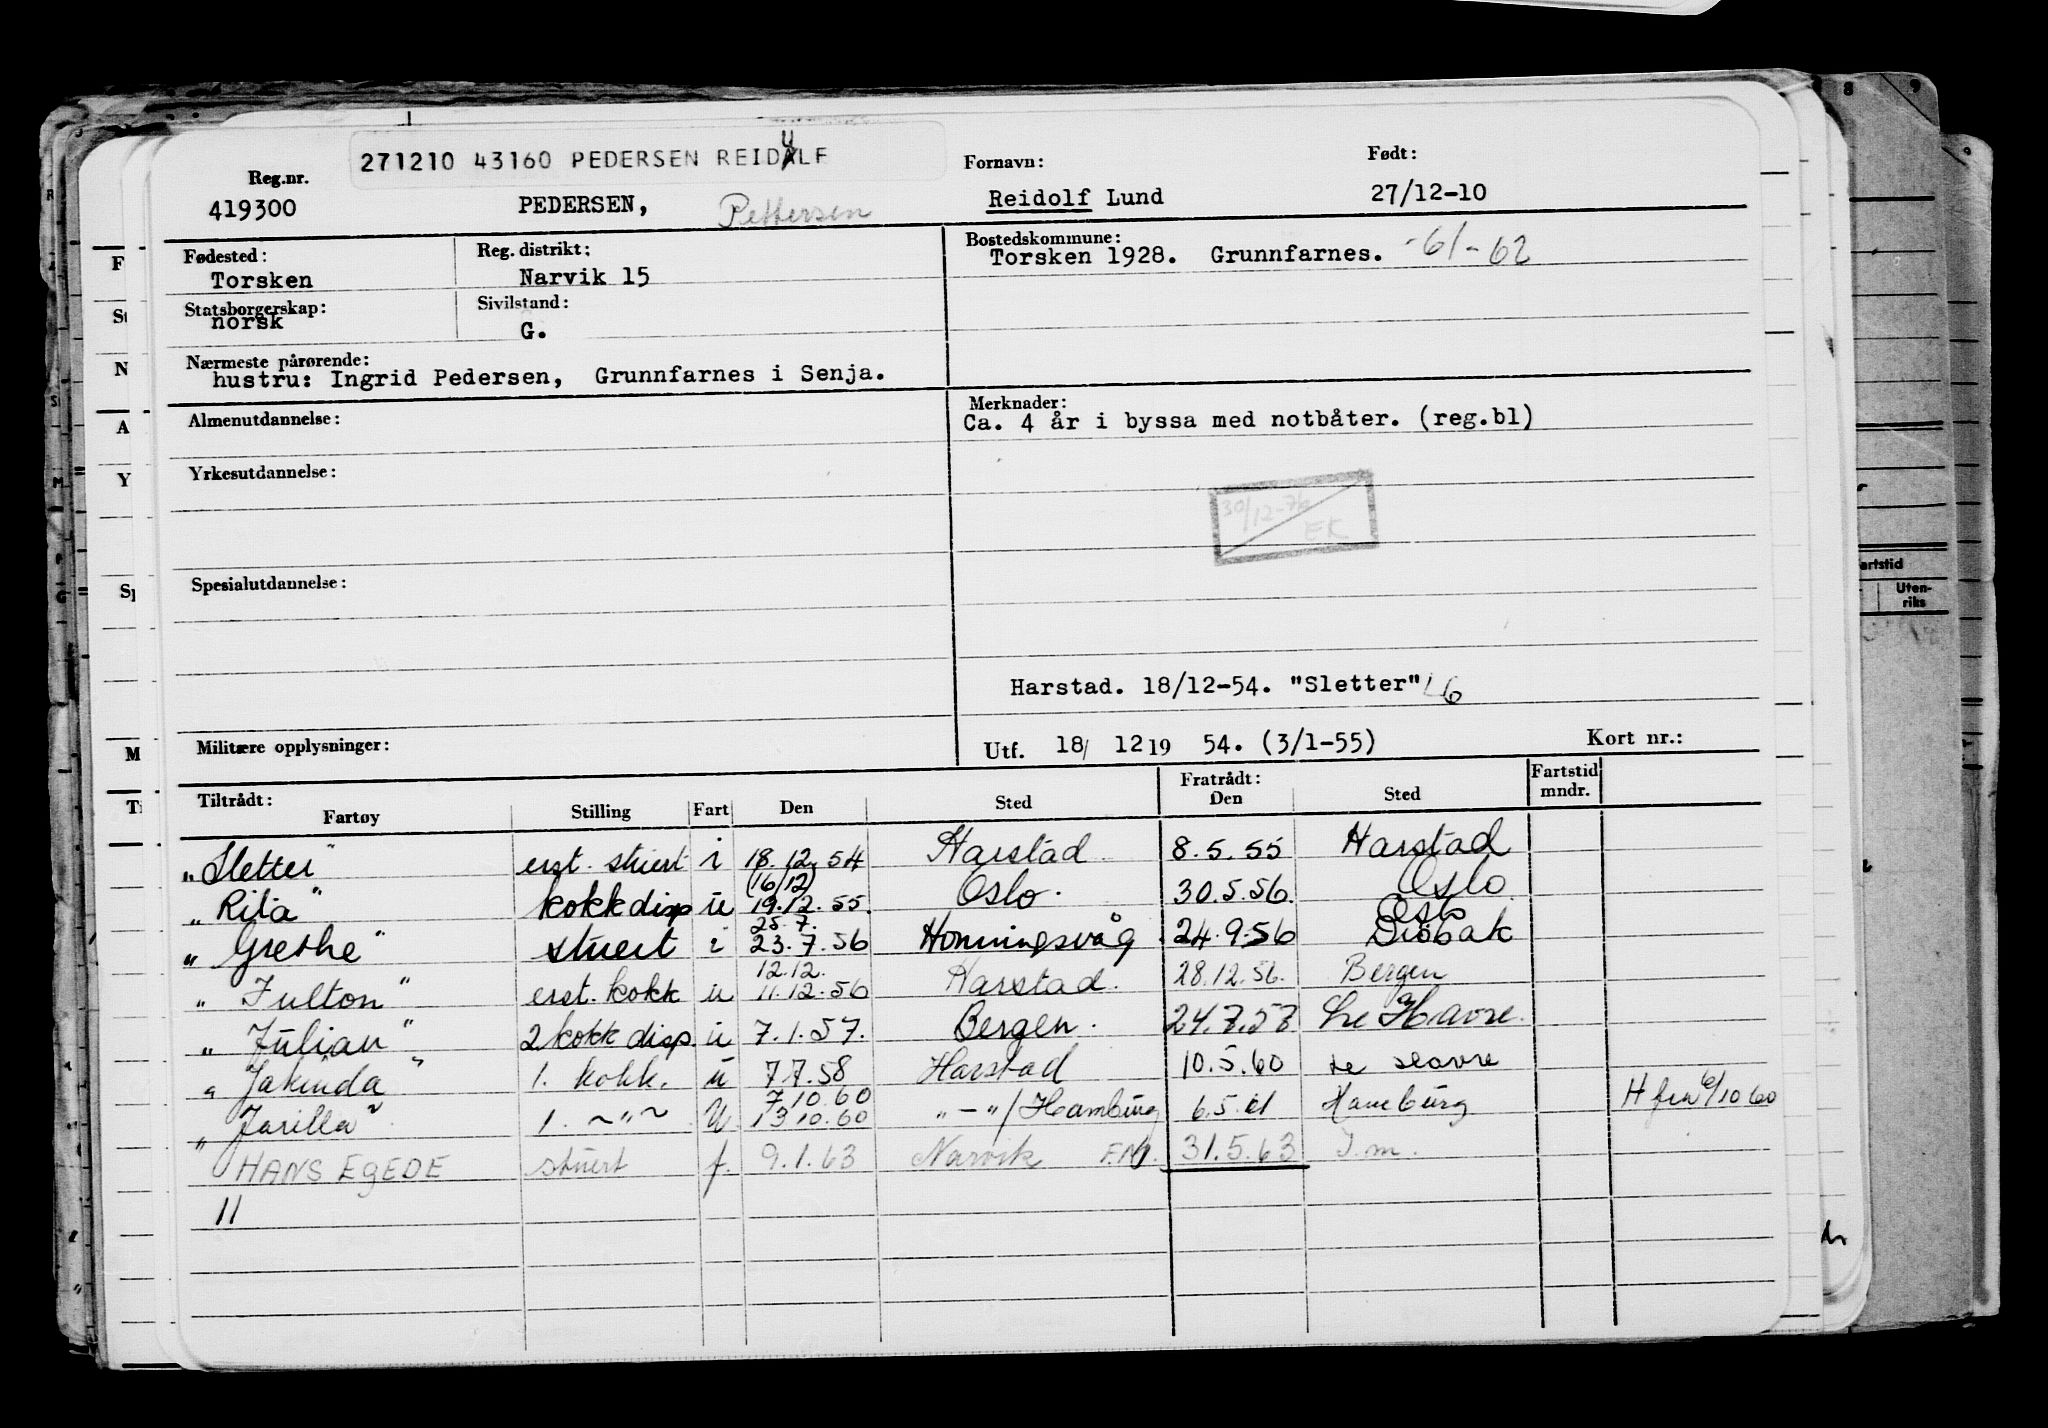 271210 43160 PEDERSEN REIDALF
y
Reg.nr. Fornavn: Født:
419300 PEDERSEN, Pettersen Reidolf Lund 27/12-10
Fødested: Reg. distrikt: Bostedskommune:
Torsken Narvik 15 Torsken 1928. Grunnfarnes. -61-62
Statsborgerskap: Sivilstand:
norsk G.
Nærmeste pårørende:
hustru: Ingrid Pedersen, Grunnfarnes i Senja.
Almenutdannelse: Merknader:
Ca. 4 år i byssa med notbåter. (reg.bl)
Yrkesutdannelse:
30/12-76
EK
Spesialutdannelse:
Harstad. 18/12-54. "Sletter"
Militære opplysninger: Utf. 18/ 12 19 54. (3/1-55) Kort nr.:
Tiltrådt: Fratrådt: Fartstid
Fartøy Stilling Fart Den Sted Den Sted mndr.
"Sletter" erst. stuert i 18.12.54 Harstad 8.5.55 Harstad
(16/12)
"Rita" kokk disp u 19.12.55. Oslo. 30.5.56. Oslo
25.7. Oslo
"Grethe" stuert i 23.7.56 Honningsvåg 24.9.56 Drøbak
12.12.
"Fulton" erst. kokk u 11.12.56 Harstad. 28.12.56. Bergen
"Julian" 2 kokk disp. u 7.1.57. Bergen. 24.7.57 Le Havre.
"Jakinda" 1. kokk. u 7 7.58 Harstad 10.5.60 Le Havre
7 10.60
"Jarilla" 1. ~"~ U 13 10.60 "-"/Hamburg 6.5.61 Hamburg H fra 6/10 60
"HANS EGEDE stuert f. 9.1.63 Narvik F.M. 31.5.63 I.m.
11